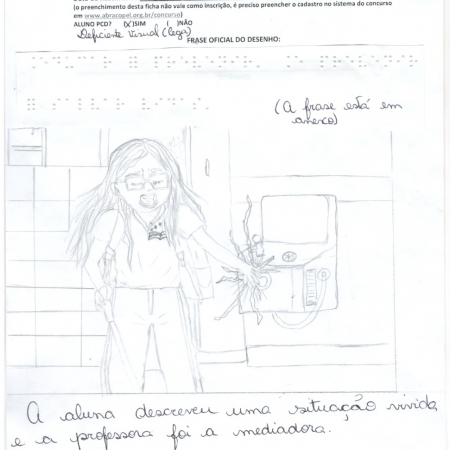 (o preenchimento desta ficha não vale como inscrição, é preciso preencher o cadastro no sistema do concurso
em www.abracopel.org.br/concurso)
ALUNO PCD? (X)SIM ( )NÃO
Deficiente Visual (cega)
FRASE OFICIAL DO DESENHO:
(A frase está em
anexo)
A aluna descreveu uma situação vivida,
e a professora foi a mediadora.